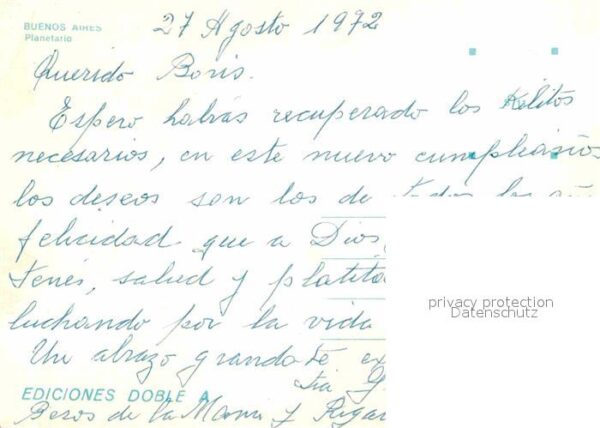 BUENOS AIRES
Planetario
27 Agosto 1972
Querido Boris.
Espero habrás recuperado los Kilitos
necesarios, en este nuevo cumpleaños
los deseos son los de todos los
felicidad que a Dios
tenés, salud y platita
luchando por la vida
Un abrazo grandote
tia
EDICIONES DOBLE A
Besos de la Mama y
privacy protection
Datenschutz